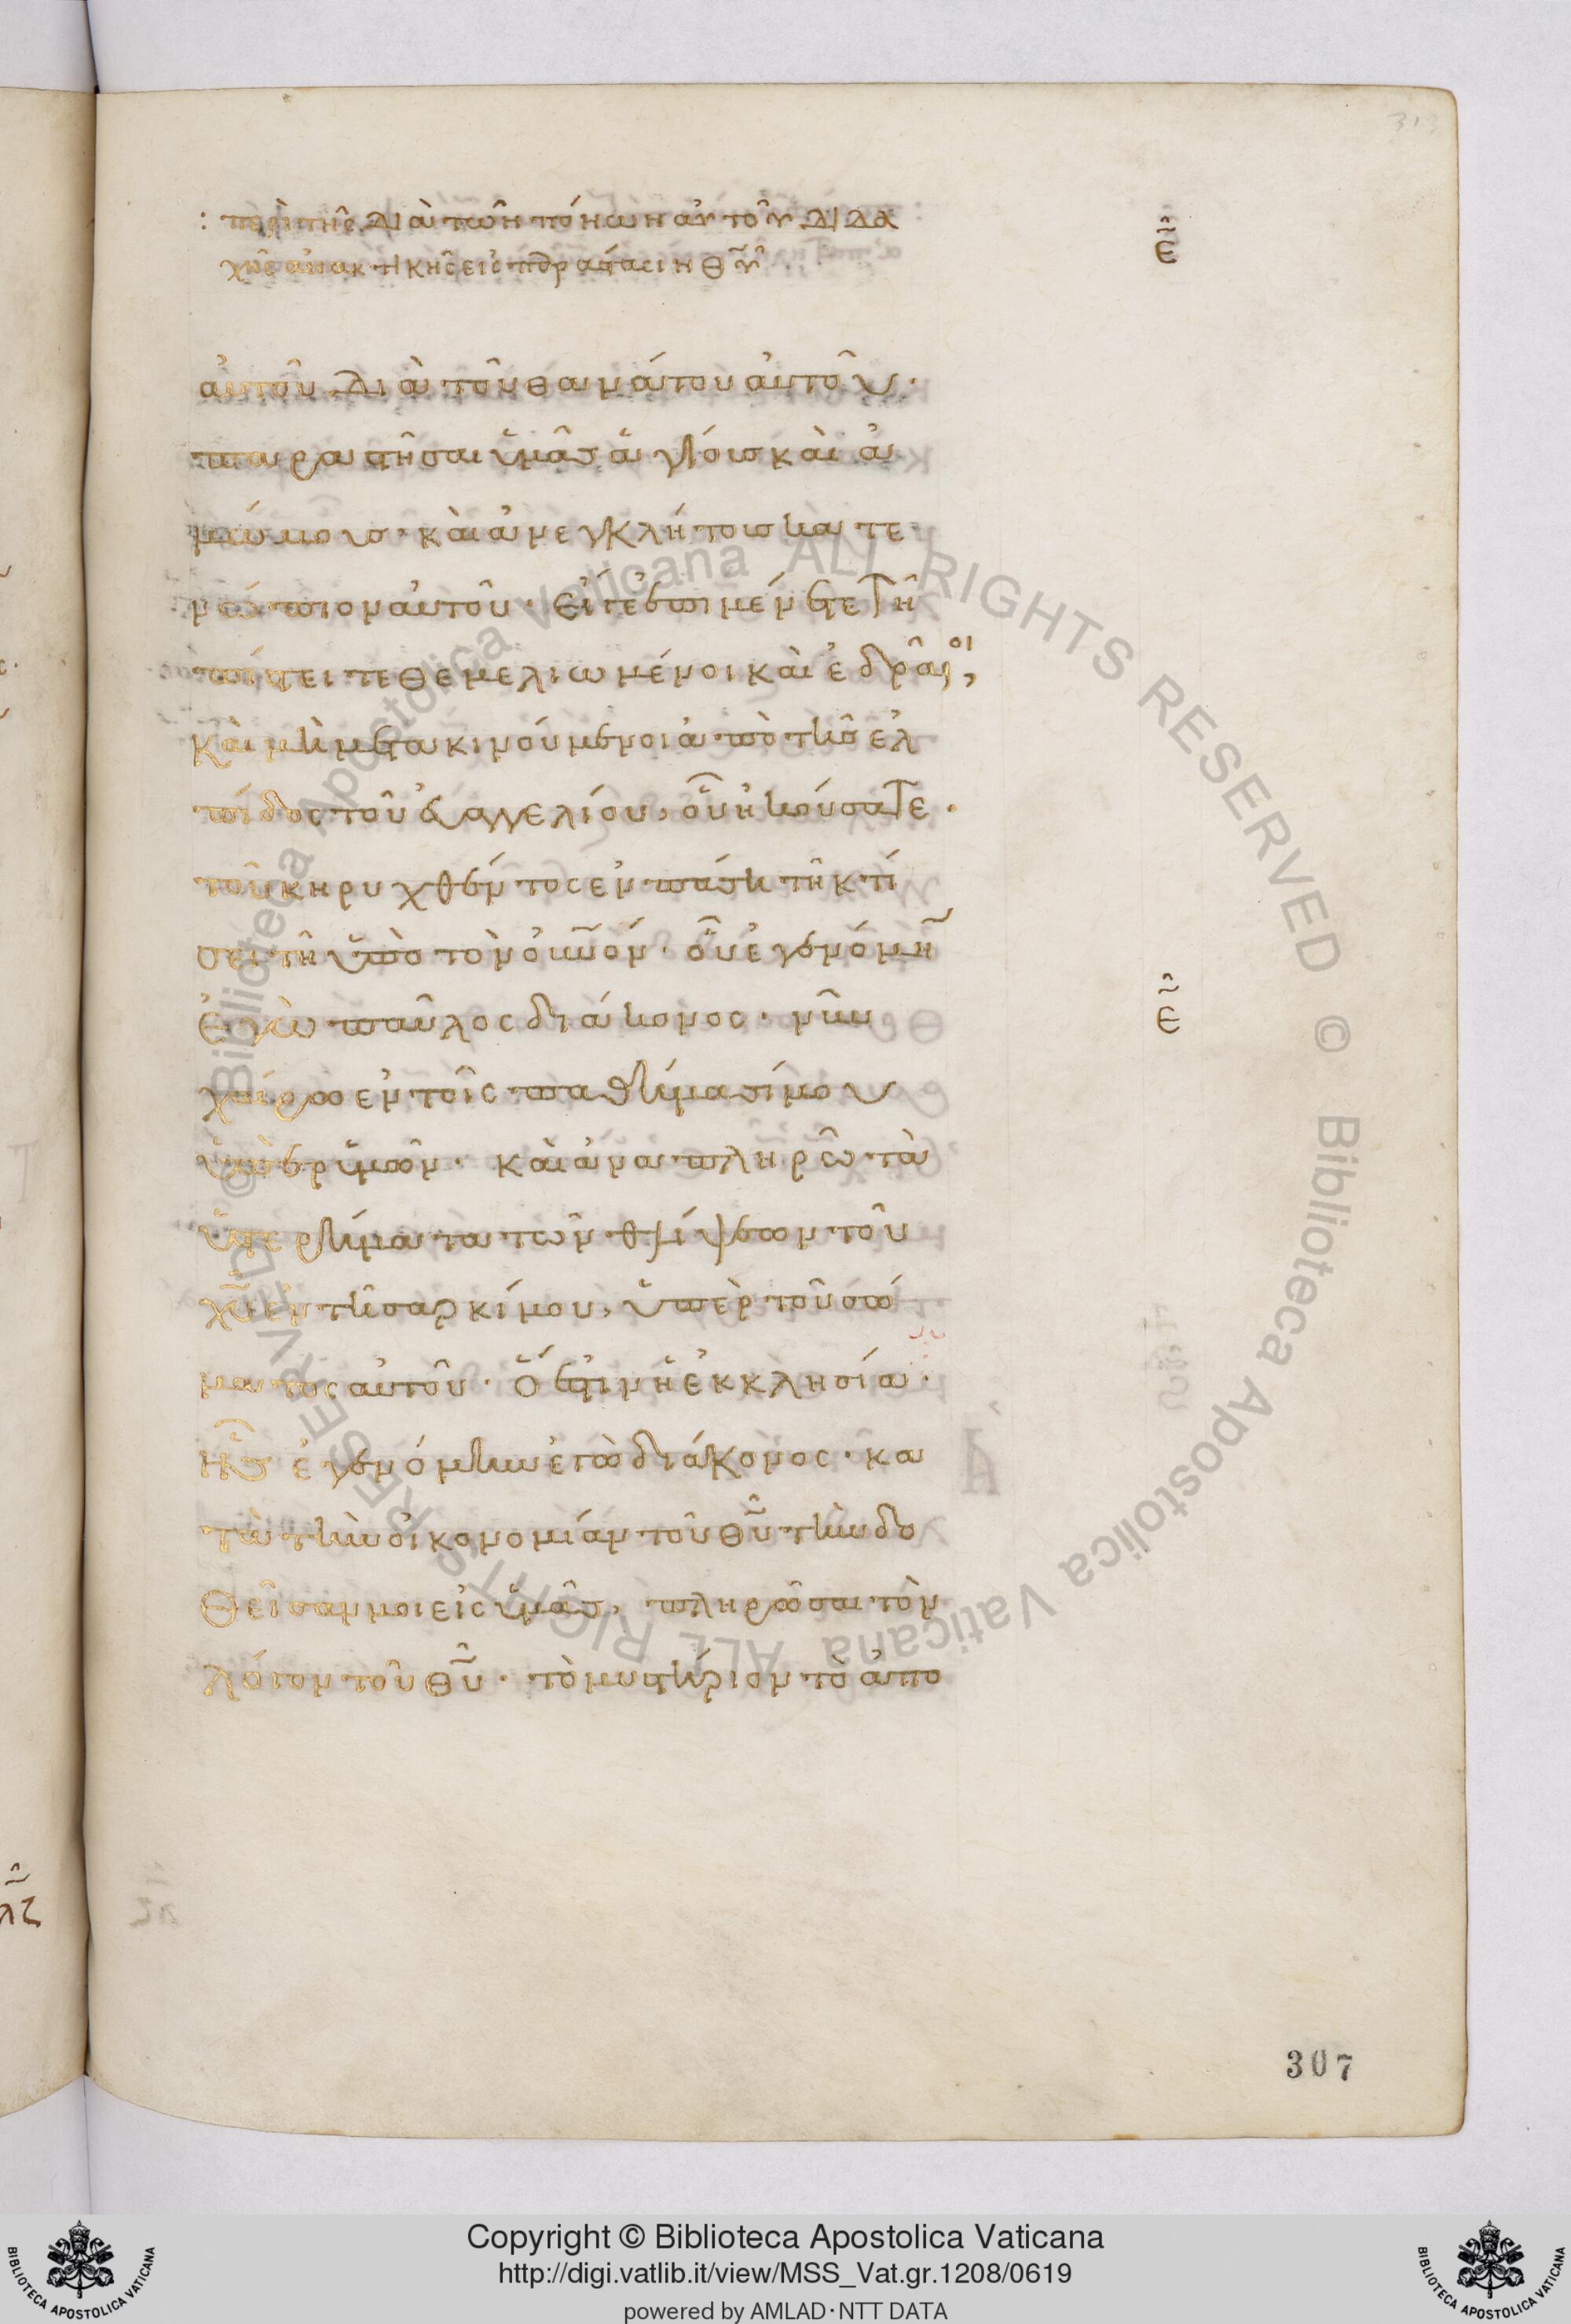 313
: περὶ τῆς διὰ τῶν πόνων αὐτοῦ διδα
χῆς ἀνακτικῆς εἰς παράστασιν θῦ
ε
αὐτοῦ διὰ τοῦ θανάτου αὐτοῦ·
παραστῆσαι ὑμᾶς ἁγίους καὶ ἀ
μώμους· καὶ ἀνεγκλήτους κατε
νώπιον αὐτοῦ· εἴ γε ἐπιμένετε τῆ
πίστει τεθεμελιωμένοι καὶ ἑδραῖοι,
καὶ μὴ μετακινούμενοι ἀπὸ τῆς ἐλ
πίδος τοῦ εὐαγγελίου, οὗ ἠκούσατε·
τοῦ κηρυχθέντος ἐν πάσῃ τῆ κτί
σει τῆ ὑπὸ τὸν οὐνόν· οὗ ἐγενόμην
ἐγὼ παῦλος διάκονος· νῦν
ε
χαίρω ἐν τοῖς παθήμασί μου
ὑπὲρ ὑμῶν· καὶ ἀναπληρῶ τὰ
ὑστερήματα τῶν θλίψεων τοῦ
χῦ ἐν τῆ σαρκί μου, ὑπὲρ τοῦ σώ
ματος αὐτοῦ· ὅ ἐστιν ἡ ἐκκλησία·
ἧς ἐγενόμην ἐγὼ διάκονος· κα
τὰ τὴν οἰκονομίαν τοῦ θῦ τὴν δο
θεῖσαν μοι εἰς ὑμᾶς, πληρῶσαι τὸν
λόγον τοῦ θῦ· τὸ μυστήριον τὸ ἀπο
λζ
307
© Biblioteca Apostolica Vaticana ALL RIGHTS RESERVED © Biblioteca Apostolica Vaticana ALL RIGHTS RESERVED
BIBLIOTECA APOSTOLICA VATICANA
Copyright © Biblioteca Apostolica Vaticana
http://digi.vatlib.it/view/MSS_Vat.gr.1208/0619
powered by AMLAD·NTT DATA
BIBLIOTECA APOSTOLICA VATICANA